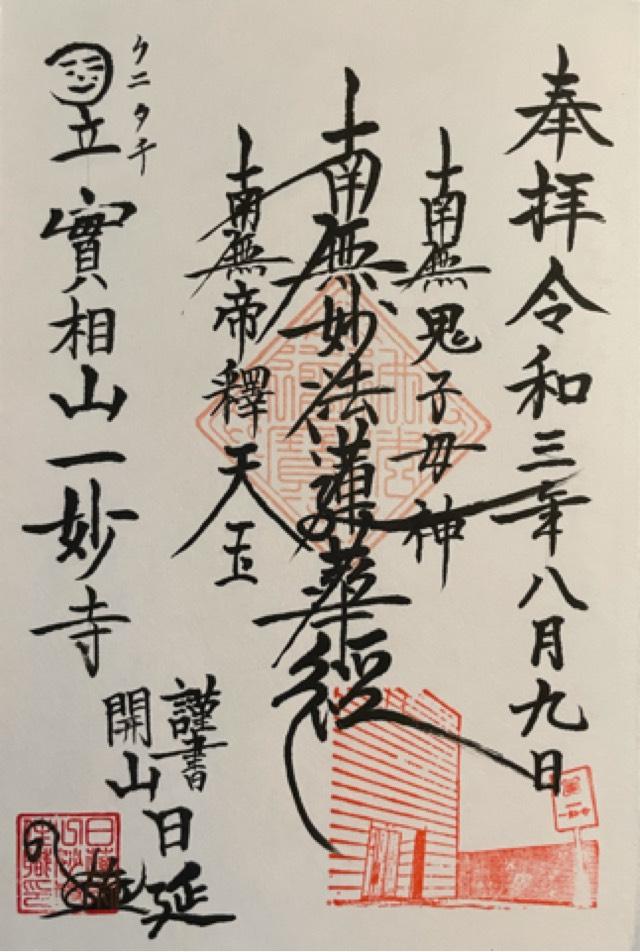 奉拝令和三年八月九日
南無鬼子母神
南無妙法蓮華経
南無帝釋天王
謹書
開山日延
クニタチ
国立實相山一妙寺